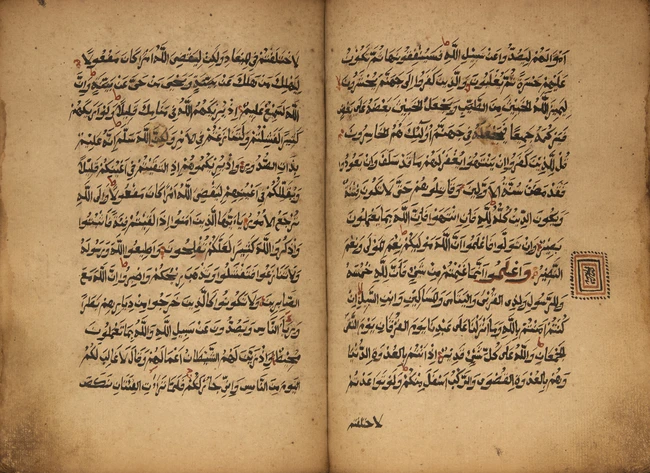 اموالهم ليصدوا عن سبيل الله فسينفقونها ثم تكون
عليهم حسرة ثم يغلبون والذين كفروا الى جهنم يحشرون
ليميز الله الخبيث من الطيب ويجعل الخبيث بعضه على بعض
فيركمه جميعا فيجعله في جهنم اولئك هم الخاسرون
قل للذين كفروا ان ينتهوا يغفر لهم ما قد سلف وان يعودوا
فقد مضت سنة الاولين وقاتلوهم حتى لا تكون فتنة
ويكون الدين كله لله فان انتهوا فان الله بما يعملون
بصير وان تولوا فاعلموا ان الله موليكم نعم المولى ونعم
النصير واعلموا انما غنمتم من شيء فان لله خمسه
وللرسول ولذي القربى واليتامى والمساكين وابن السبيل ان
كنتم امنتم بالله وما انزلنا على عبدنا يوم الفرقان يوم التقى
الجمعان والله على كل شيء قدير اذ انتم بالعدوة الدنيا
وهم بالعدوة القصوى والركب اسفل منكم ولو تواعدتم
لاختلفتم
لاختلفتم في الميعاد ولكن ليقضي الله امرا كان مفعولا
ليهلك من هلك عن بينة ويحيى من حي عن بينة وان
الله لسميع عليم اذ يريكهم الله في منامك قليلا ولو اريكهم
كثيرا لفشلتم ولتنازعتم في الامر ولكن الله سلم انه عليم
بذات الصدور واذ يريكموهم اذ التقيتم في اعينكم قليلا
ويقللكم في اعينهم ليقضي الله امرا كان مفعولا والى الله
ترجع الامور يا ايها الذين امنوا اذا لقيتم فئة فاثبتوا
واذكروا الله كثيرا لعلكم تفلحون واطيعوا الله ورسوله
ولا تنازعوا فتفشلوا وتذهب ريحكم واصبروا ان الله مع
الصابرين ولا تكونوا كالذين خرجوا من ديارهم بطرا
ورئاء الناس ويصدون عن سبيل الله والله بما يعملون
محيط واذ زين لهم الشيطان اعمالهم وقال لا غالب لكم
اليوم من الناس واني جار لكم فلما تراءت الفئتان نكص